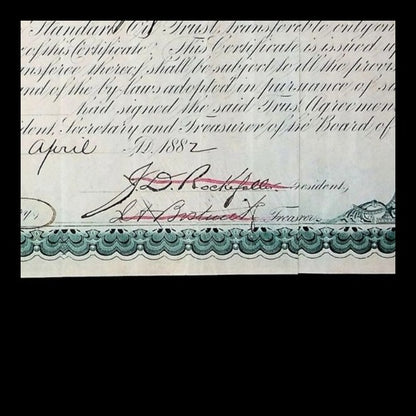 Standard Oil Trust, transferable only on
of this Certificate. This Certificate is issued u
ansferee thereof, shall be subject to all the provis
nd of the by-laws adopted in pursuance of sa
had signed the said Trust Agreemen
dent, Secretary and Treasurer of the Board of
April A.D. 1882
J.D. Rockefeller President,
Treasurer